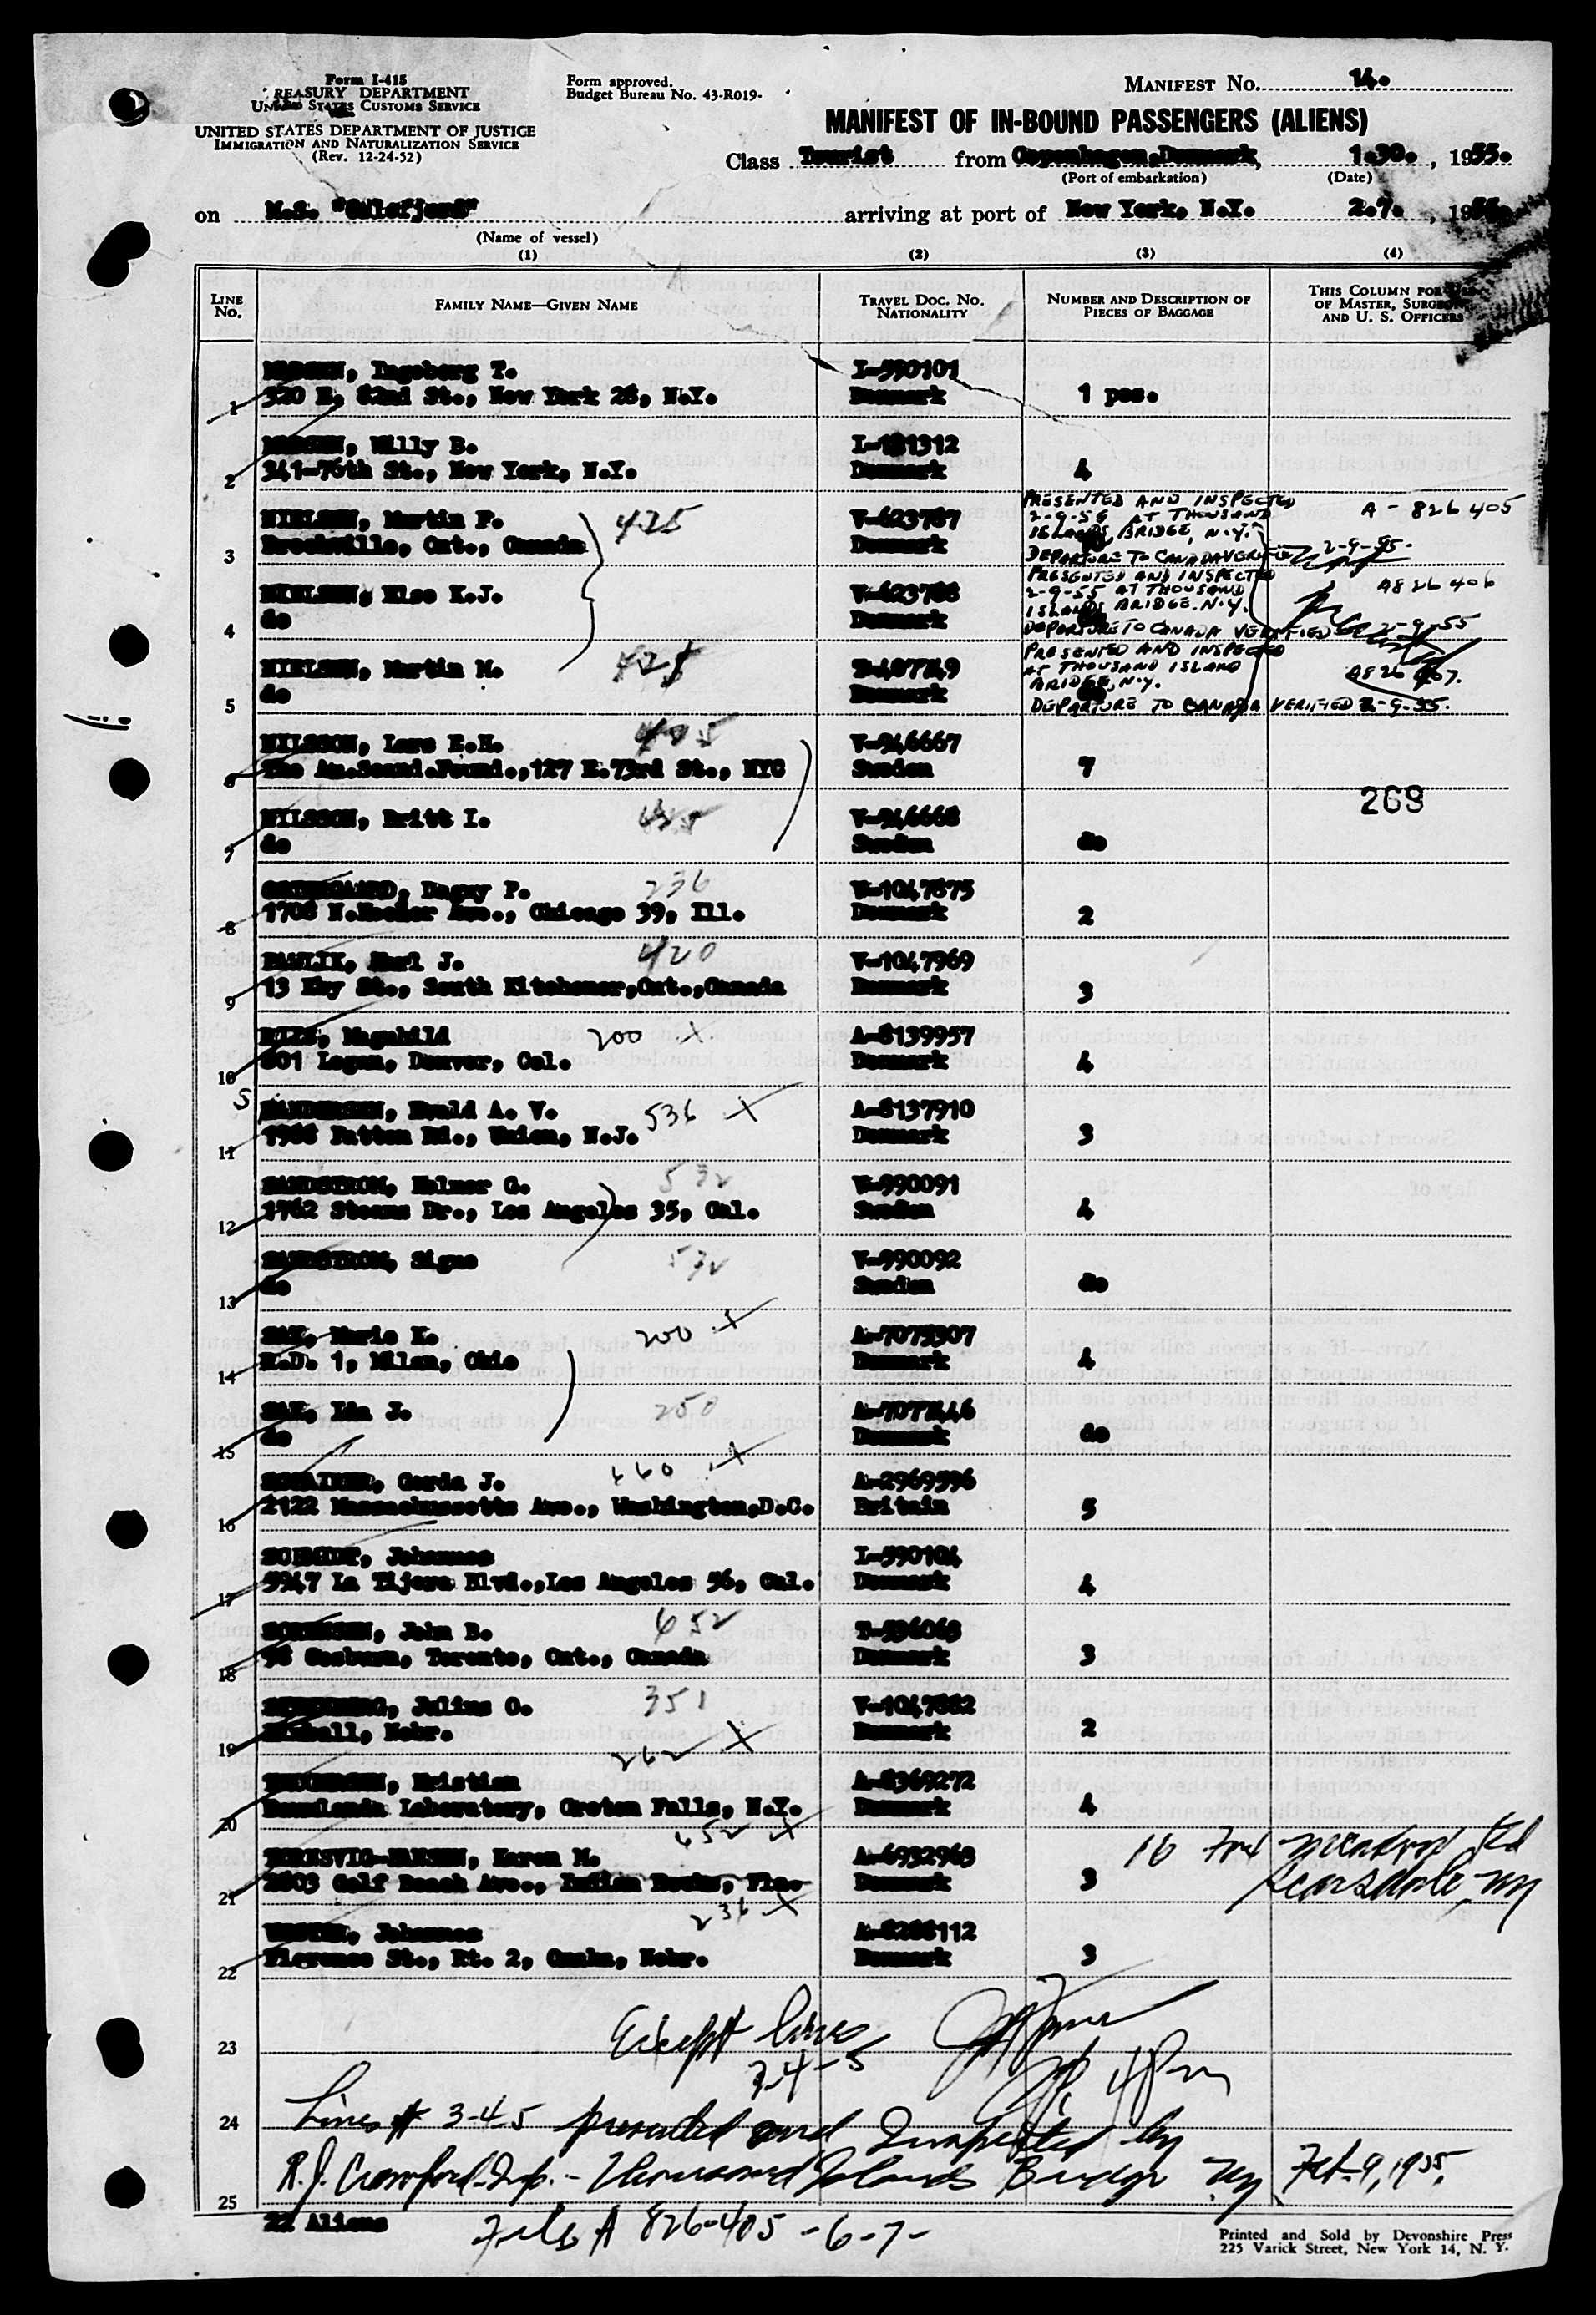 Form I-415
TREASURY DEPARTMENT
UNITED STATES CUSTOMS SERVICE
UNITED STATES DEPARTMENT OF JUSTICE
IMMIGRATION AND NATURALIZATION SERVICE
(Rev. 12-24-52)
Form approved.
Budget Bureau No. 43-R019-
MANIFEST NO. 14.
MANIFEST OF IN-BOUND PASSENGERS (ALIENS)
Class Tourist from Copenhagen, Denmark, 1.30., 1955.
(Port of embarkation) (Date)
on M.S. "Oslofjord" arriving at port of New York, N.Y. 2.7., 1955.
(Name of vessel)
(1) (2) (3) (4)
LINE NO.
FAMILY NAME—GIVEN NAME
TRAVEL DOC. NO. NATIONALITY
NUMBER AND DESCRIPTION OF PIECES OF BAGGAGE
THIS COLUMN FOR USE OF MASTER, SURGEON, AND U. S. OFFICERS
Ingeborg T. I-590101
1 320 E. 82nd St., New York 28, N.Y. Denmark 1 pcs.
Willy B. I-181312
2 341-76th St., New York, N.Y. Denmark 4
NIELSEN, Martin F. 425 V-623787
3 Brockville, Ont., Canada Denmark
PRESENTED AND INSPECTED
2-9-55 AT THOUSAND
ISLANDS BRIDGE, N.Y.
DEPARTURE TO CANADA VERIFIED 2-9-55.
A - 826 405
NIELSEN, Else K.J. V-623788
4 do Denmark
PRESENTED AND INSPECTED
2-9-55 AT THOUSAND
ISLANDS BRIDGE. N.Y.
DEPARTURE TO CANADA VERIFIED 2-9-55
A826 406
NIELSEN, Martin M. 425
5 do Denmark
PRESENTED AND INSPECTED
AT THOUSAND ISLAND
BRIDGE, N.Y.
DEPARTURE TO CANADA VERIFIED 2-9-55.
A826 407.
NILSSON, Lars E.H. V-946667
6 The Am.Scand.Found., 127 E.73rd St., NYC Sweden 7
269
NILSSON, Britt I. V-946668
7 do Sweden do
Dagny P. 236 V-1047875
8 1708 N. Ave., Chicago 39, Ill. Denmark 2
PAWLIK, Karl J. 420 V-1047969
9 13 Eby St., South Kitchener, Ont., Canada Denmark 3
Magnhild 200 X A-8139957
10 801 Logan, Denver, Col. Denmark 4
S
SANDERSEN, Evald A. V. 536 X A-8137910
11 Patton Rd., Union, N.J. Denmark 3
SANDSTROM, Helmer G. 532 V-990091
12 1762 Stearns Dr., Los Angeles 35, Cal. Sweden 4
SANDSTROM, Signe 532 V-990092
13 do Sweden do
SAX, Marie K. 200 X A-7075307
14 R.D. 1, Milan, Ohio Denmark 4
SAX, Ida J. 250
15 do Denmark do
Gerda J. 660 X A-2969596
16 2122 Massachussetts Ave., Washington, D.C. Britain 5
SCHMIDT, Johannes I-590104
17 5947 La Tijera Blvd., Los Angeles 56, Cal. Denmark 4
SORENSEN, John B. 652
18 Toronto, Ont., Canada Denmark 3
Julius O. 351 V-1047882
19 Kimball, Nebr. Denmark 2
Kristian 262 X A-8369272
20 Laboratory, Croton Falls, N.Y. Denmark 4
Karen M. 652 X A-6932963
21 2803 Gulf Beach Ave., Indian Rocks, Fla. Denmark 3
Scarsdale, NY
Johannes 236 X A-8288112
22 Florence St., Rt. 2, Omaha, Nebr. Denmark 3
Except lines
3-4-5
23
24 Lines # 3-4-5 presented and Inspected by
25 R.J. Crawford Insp. - Thousand Islands Bridge NY Feb-9, 1955.
22 Aliens
File A 826-405 - 6 - 7 -
Printed and Sold by Devonshire Press
225 Varick Street, New York 14, N. Y.